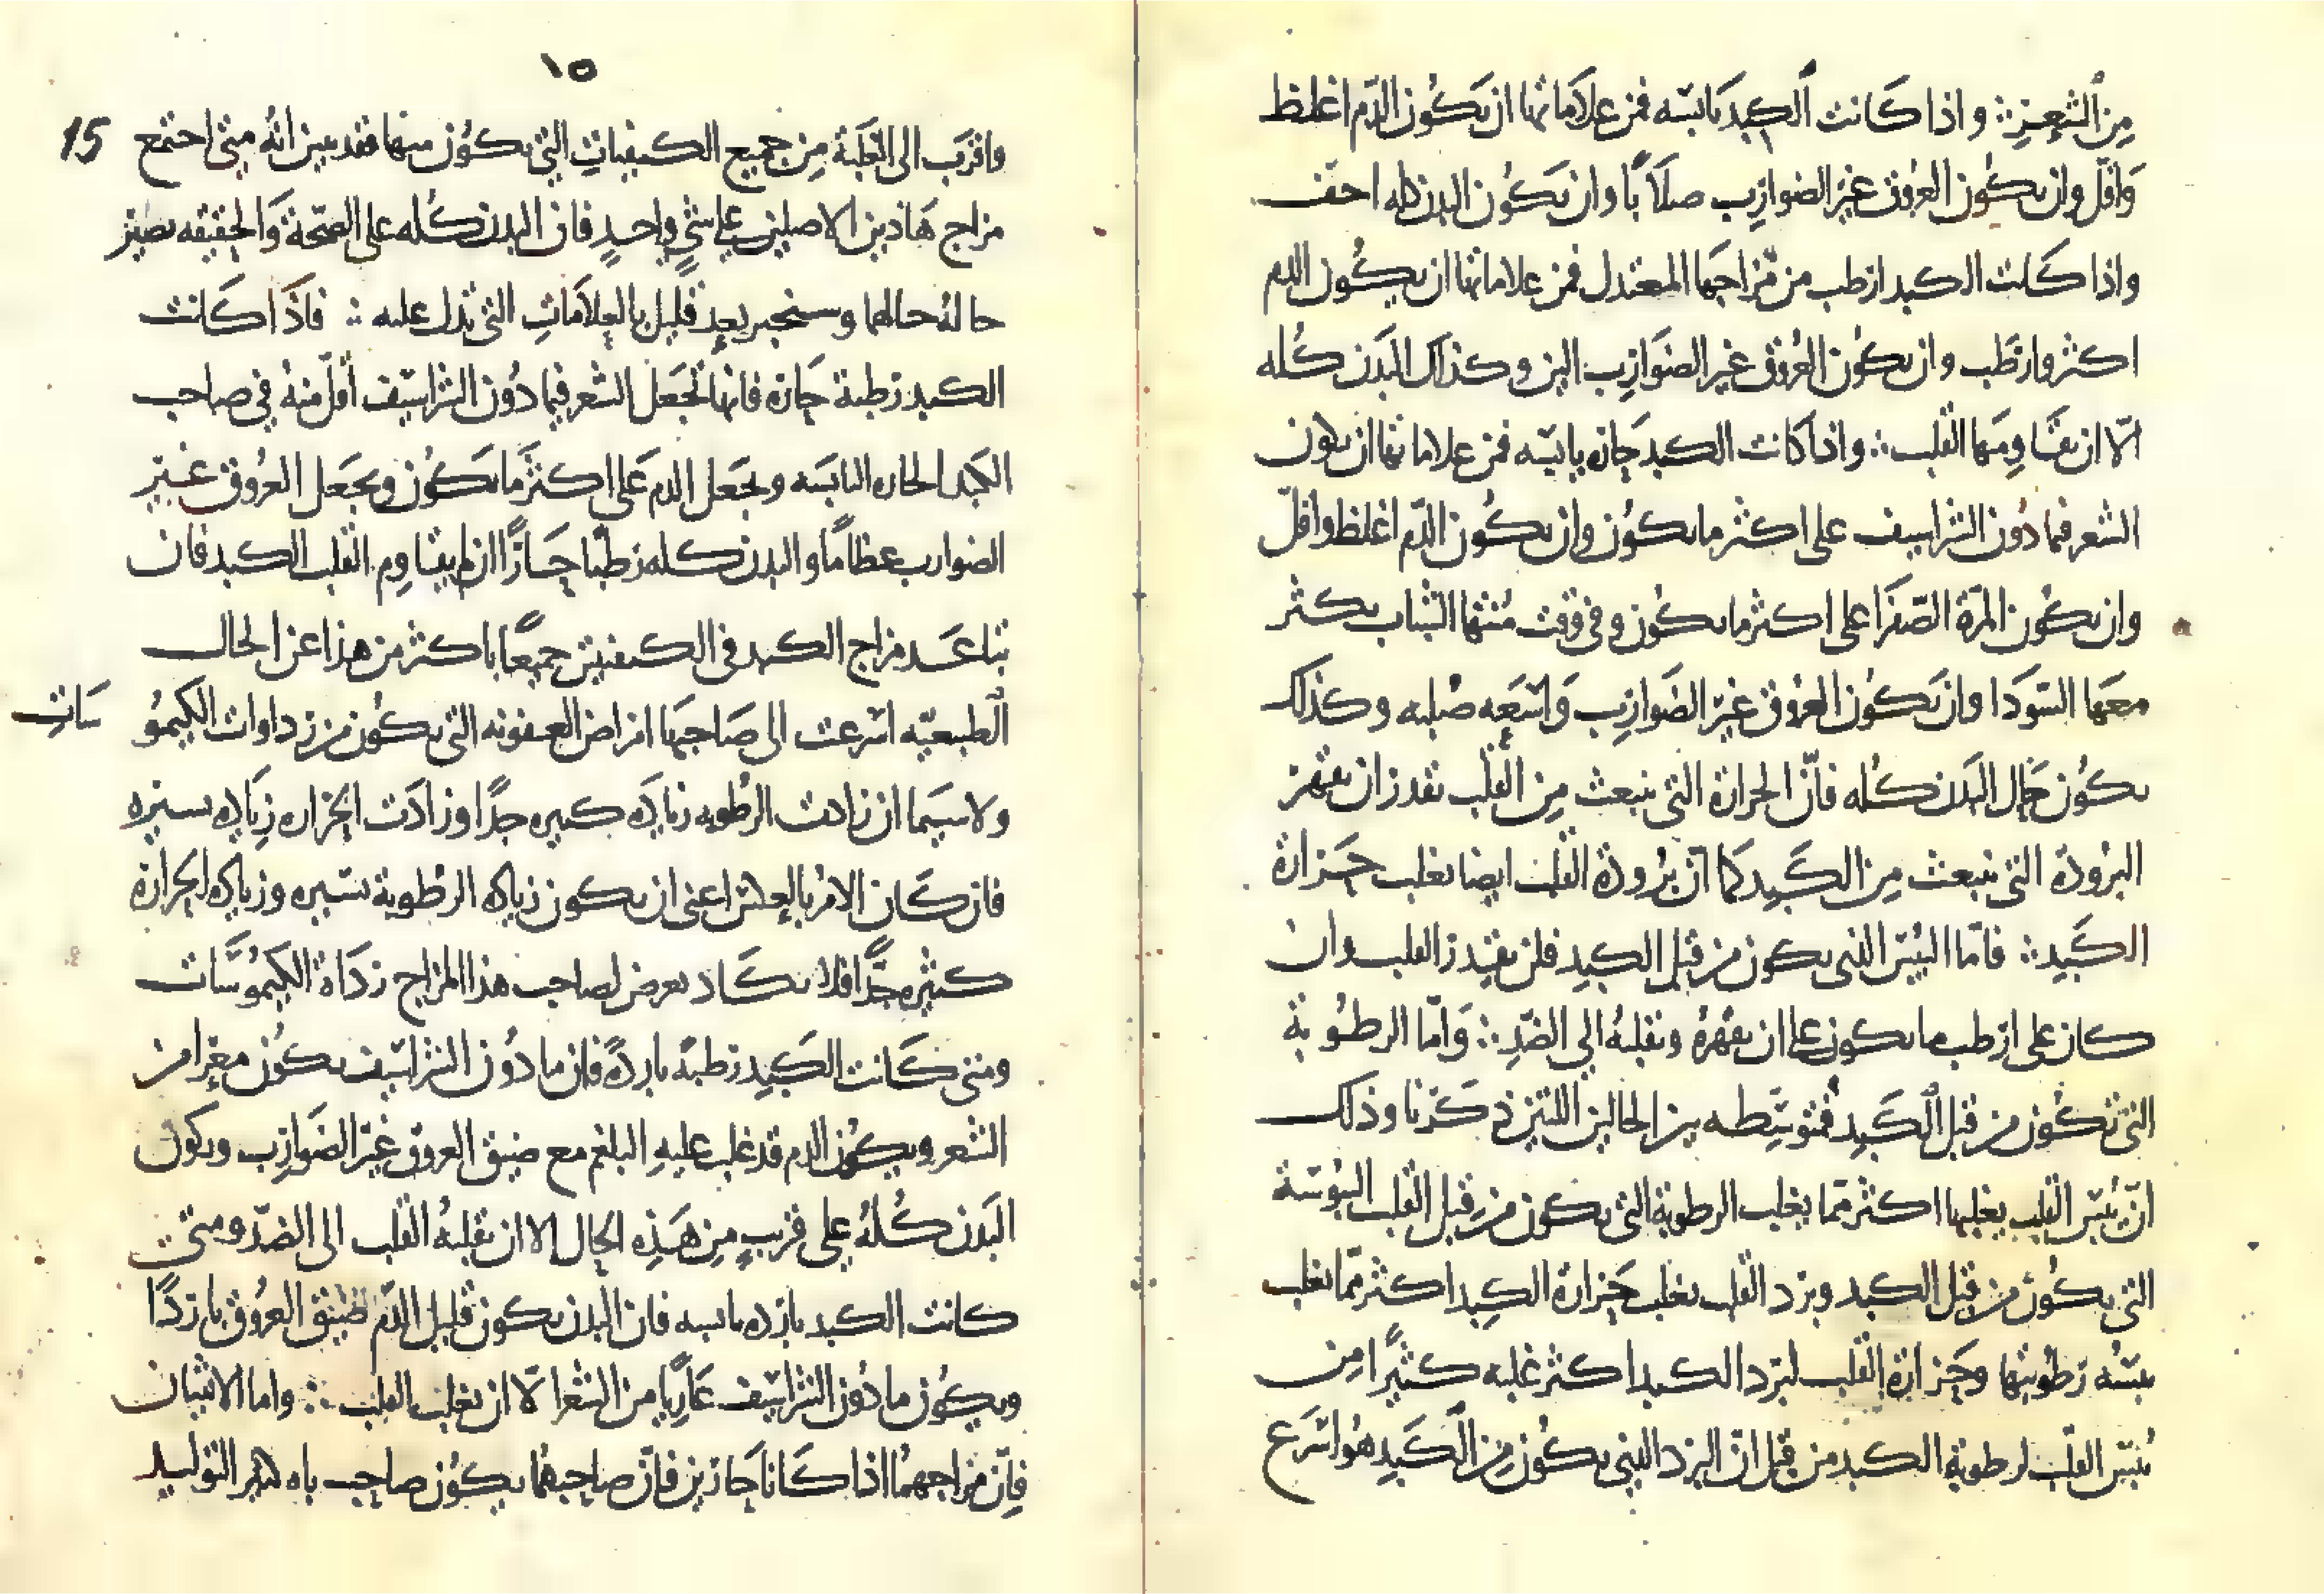 من الشعر ∴ واذا كانت الكبد يابسه فمن علاماتها ان يكون الدم اغلظ
وَاقلّ وان يكون العروق غير الضوارب صلابًا وان يَكون البدن كله اجف
واذا كانت الكبد ارطب من مزاجها المعتدل فمن علاماتها ان يكون الدم
اكثر وارطَب وان يكون العُروق غير الضوَارب الين وكذلك البَدن كُله
الّا ان يقَاوِمَها القلب ∴ واذا كانت الكبد حَاره يابسه فمن علاماتها ان يكون
الشعر فيما دُون الشراسيف على اكثر ما يكوُن وان يكون الدّم اغلظ واقلّ
وان يكون المرّة الصّفرَا على اكثر ما يكوُن وفي وقت مُنتها الشباب يكثر
معَها السَّودَا وان يَكوُن العروق غيرَ الضَوارِب وَاسَعِه صُلبه وكذلك
يكوُن حَال البَدن كُله فانّ الحرارة التي تنبعث مِن القَلب تقدر ان تقهر
البرُودة التي تنبعث مِن الكَبد كما انّ بُرودة القلب ايضا تغلب حَرارة
الكَبِد ∴ فامّا اليُبس الذي يكون من قبل الكبِد فلن يَقدِر القلب وان
كان على ارطب ما يكون على ان يقهَرهُ ويقلبهُ الي الضّدِ ∴ وَامّا الرطوُبة
التي تكوُن من قبل الكَبِد فمتوسِّطه بين الحالين اللتين ذكَرنا وذلك
انّ يُبسَ القلب يغلبها اكثر ممّا يغلب الرطوبة التي يكون من قِبل القلب اليبُوسَة
التي يكوُن من قِبل الكبد وبرد القلب يغلب حَرارة الكبِد اكثر ممّا يغلب
يبسُه رَطُوبتها وحَرارة القلب لبَرد الكبد اكثر غلبه كثيرًا مِن
يُبسَ القلب لرطوبة الكبد من قِبل انّ البرد الذي يكوُن مِن الكَبد هُو اسَرَع
١٥
15
واقرَب الى الغَلبَة مِن جميع الكيفياتِ التي يكوُن منها فقد تبين انّهُ متى اجتمع
مزاج هَاذين الاصلين على شيٍ واحدٍ فان البدن كُله على الصِّحة وَالحقيقه يصير
حالهُ حالهما وسنخبر بعد قليل بالعلامَاتِ التي تدل عليه ∴ فاذَا كَانت
الكبد رطبة حَاره فانها تَجعَل الشعر فيما دُون الشراسيف أقلّ منهُ في صاحب
الكَبد الحاره اليابسَه وتجعَل الدم عَلى اكثَر مَا يَكوُن وتجعَل العرُوق غيَر
الضوارب عظامًا والبدن كله رَطبًا حَارًّا ان لم يقاوِم القلب الكبد فان
تباعَد مزاج الكبد في الكيفيتين جميعًا باكثر من هذا عن الحال
الطبيعيّه اسرعت الى صَاحبهَا امراض العفونه التي يكون من رداوات الكيموُ
سَاتِ
ولا سيَما ان زادت الرطُوبه زيادَه كبيره جدًا وزادَت الحراره زِيَاده يسيره
فان كَان الامرُ بالعكس اعني ان يكون زياده الرطُوبة يسيره وزياده الحرارة
كثيره جدًّا فلا يكَاد يعرض لصاحب هذا المزاج ردَاة الكيمُوسَّات
ومتى كَانت الكَبِد رَطبه بارِدهً فان ما دُون الشراسيف يكوُن معرا من
الشعر ويكوُن الدم قد غلب عليهِ البلغم مع ضيق العروق غيَر الضوَارِب ويكوُن
البَدن كُلهُ على قريبٍ مِن هَذِه الحال الا ان يقلبهُ القلب الى الضدّ ومتى
كانت الكبد بارِده يابسه فان البدن يكون قليل الدّم ضيّق العرُوق بَاردًا
ويكوُن مادوُن الشراسَيف عَارِيًا من الشعر الّا ان يغلب القلب ∴ واما الانثيان
فانّ مزاجهمُا اذا كَانا حَارّين فانّ صاحبهُما يكوُن صاحب باه كثير التوليد